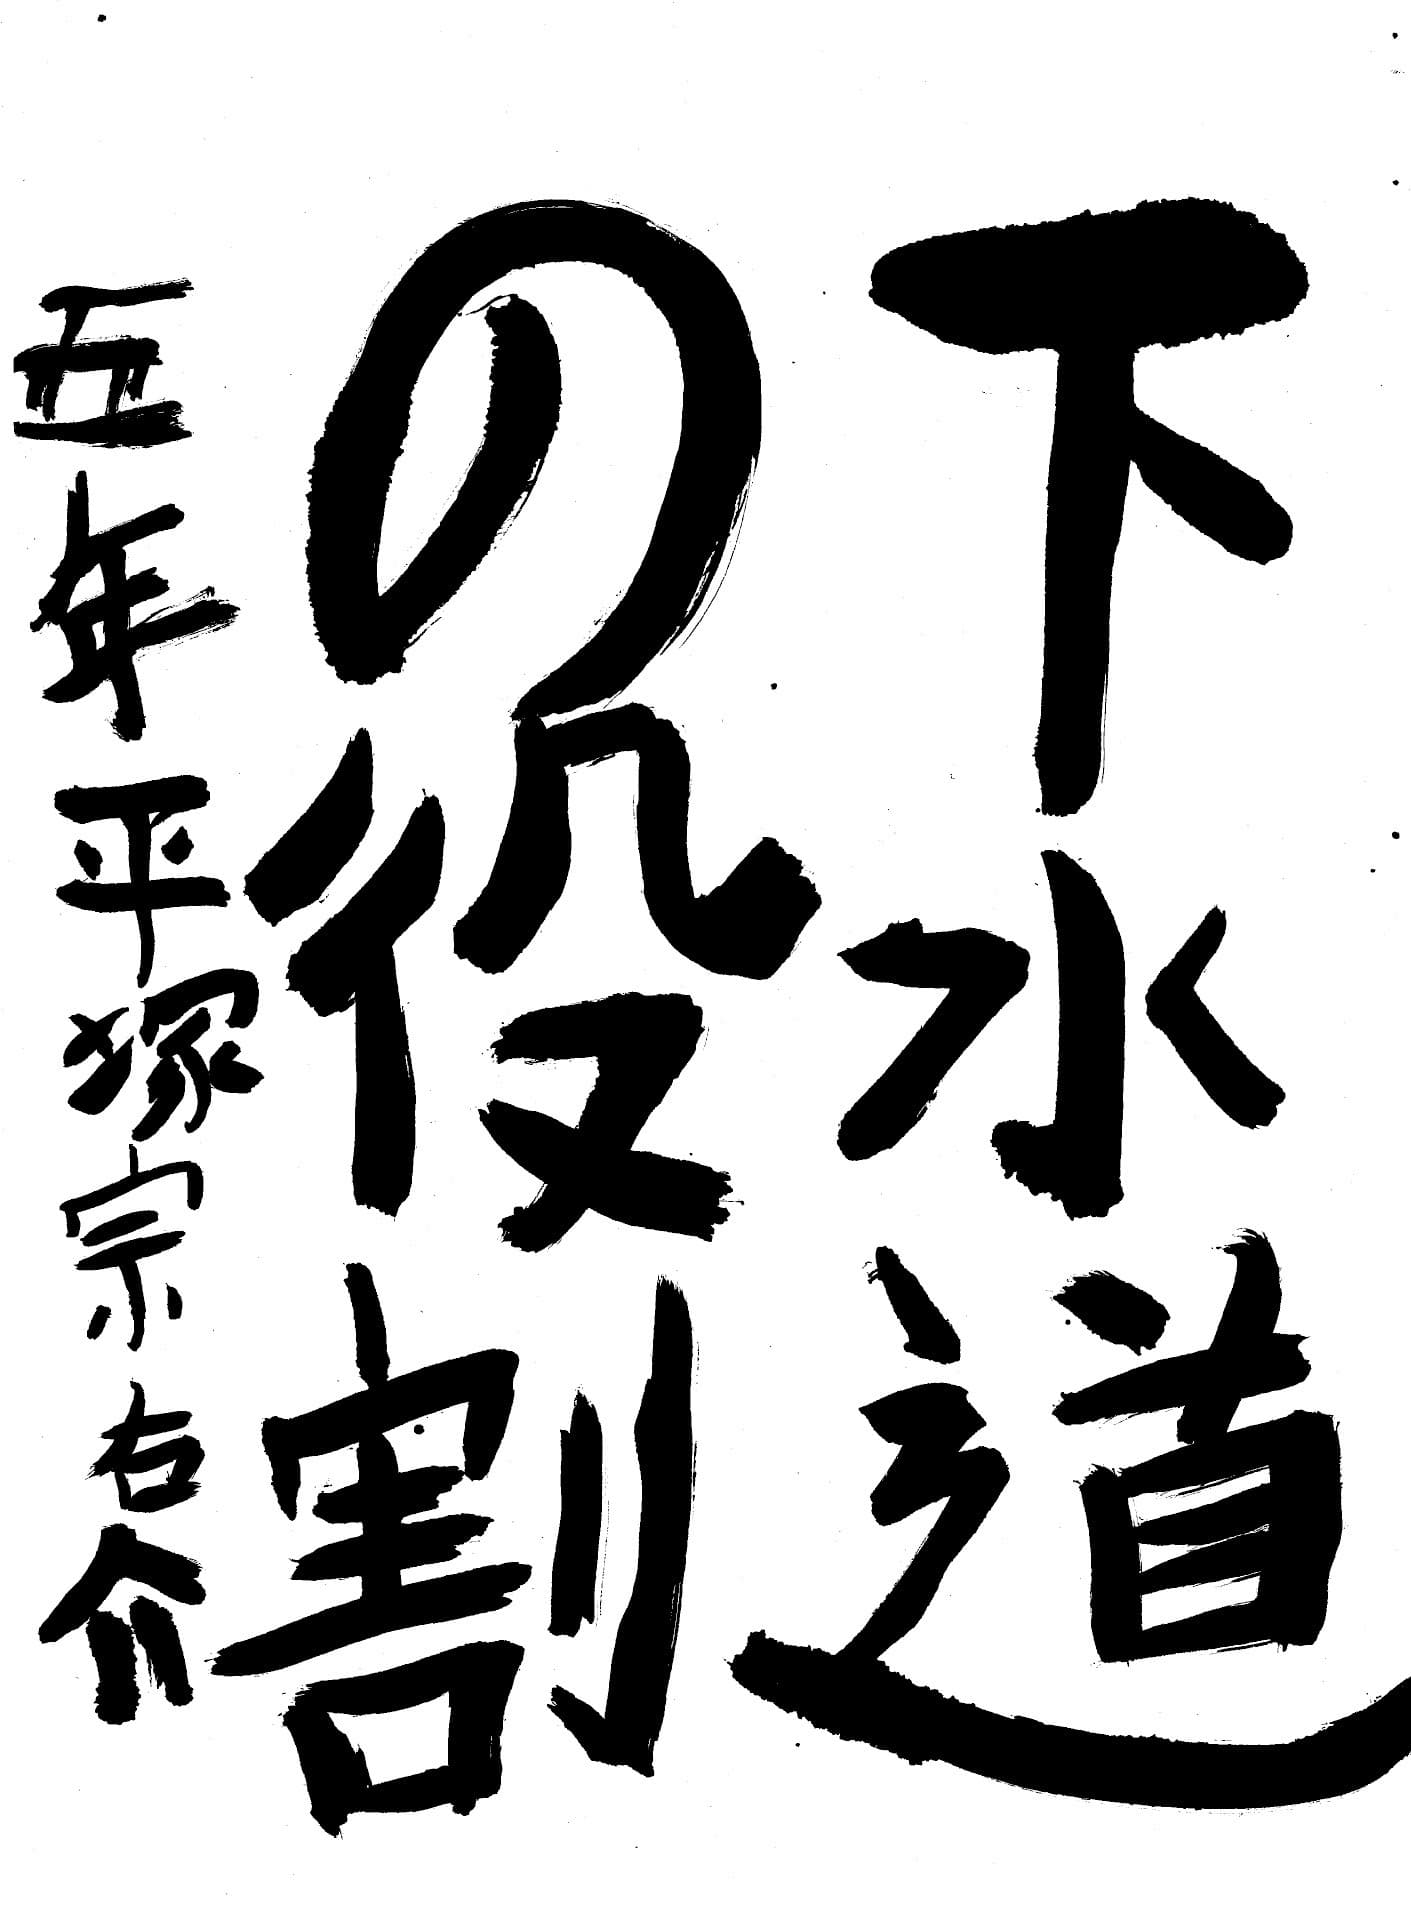 下水道
の役割
五年平塚宗右介